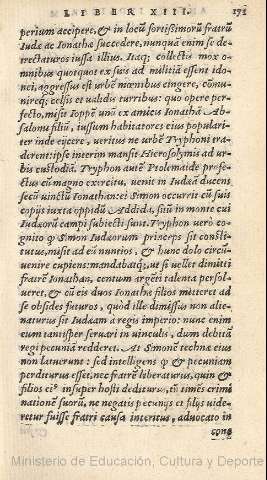 LIBER XIII. 175
perium accipere, & in locũ fortißimorũ fratrũ
Iudæ ac Ionathæ succedere, nunquã enim se de-
trectaturos iussa illius. Itaq; collectis mox o-
mnibus quotquot ex suis ad militiã essent ido-
nei, aggressus est urbẽ mœnibus cingere, cõmu-
nireq; celsis et ualidis turribus: quo opere per-
fecto, misit Ioppẽ unũ ex amicis Ionathã Ab-
salomi filiũ, iussum habitatores eius populari-
ter inde eijcere, ueritus ne urbẽ Tryphoni tra-
derent: ipse interim mansit Hierosolymis ad ur-
bis custodiã. Tryphon autẽ Ptolemaide profe-
ctus cũ magno exercitu, uenit in Iudæã ducens
secũ uinctũ Ionathan: ei Simon occurrit cũ suis
copijs iuxta oppidũ Addida, sitũ in monte cui
Iudæorũ campi subiecti sunt. Tryphon uerò co-
gnito q̃ Simon Iudæorum princeps sit consti-
tutus, misit ad eũ nuntios, & hunc dolo circũ-
uenire cupiens: mandabatq́;, ut si uellet dimitti
fratrẽ Ionathan, centum argẽti talenta persol-
ueret, & cũ eis duos Ionathæ filios mitteret ad
se obsides futuros, quòd ille dimissus non alie-
naturus sit Iudæam à regis imperio: nunc enim
eum tantisper seruari in uinculis, dum debitã
regi pecuniã redderet. At Simonẽ techna eius
non latuerunt: sed intelligens q̃ & pecuniam
perditurus esset, nec fratrẽ liberaturus, quin &
filios eiꝰ insuper hosti dediturus, tũ timẽs crimi
nationẽ suorũ, ne negatis pecunijs et filijs uide-
retur fuisse fratri causa interitus, aduocato in
conc
Ministerio de Educación, Cultura y Deporte